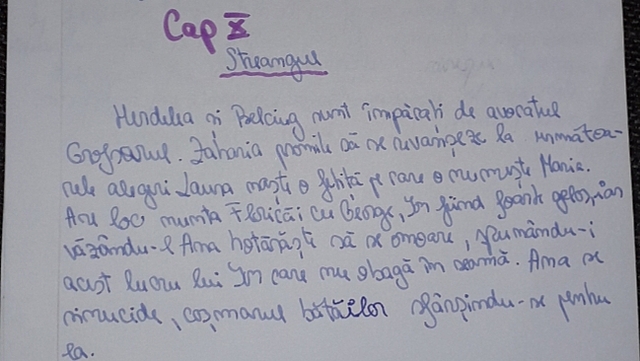 Cap X
Ștreangul
Herdelea și Belciug sunt împăcați de avocatul
Grofșorul. Zaharia promite să se revanșeze la următoa-
rele alegeri. Laura naște o fetiță pe care o numește Maria.
Are loc nunta Floricăi cu George, Ion fiind foarte gelos, iar
văzându-l Ana hotărăște să se omoare, spunându-i
acest lucru lui Ion care nu o bagă în seamă. Ana se
sinucide, coșmarul bătăilor sfârșindu-se pentru
ea.